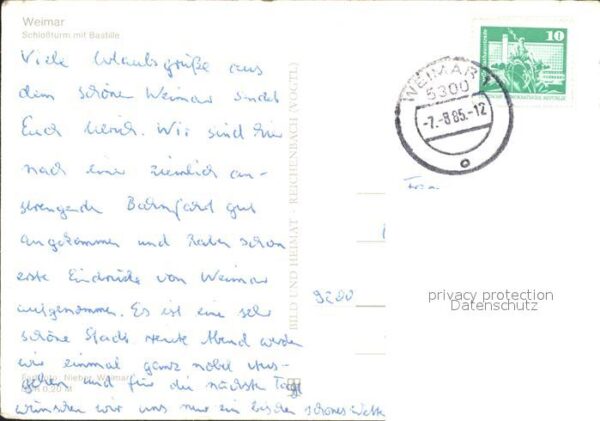 Weimar
Schloßturm mit Bastille
Viele Urlaubsgrüße aus
dem schönen Weimar sendet
Euch Ulrich. Wir sind hier
nach einer ziemlich an-
strengende Bahnfahrt gut
angekommen und haben schon
erste Eindrücke von Weimar
aufgenommen. Es ist eine sehr
schöne Stadt. Heute Abend werden
wir einmal ganz nobel Aus-
gehen und für die nächste Tage
wünschen wir uns nur ein bischen schönes Wetter
Nieber, Weimar
0,20 M
BILD UND HEIMAT · REICHENBACH (VOGTL)
10
DEUTSCHE DEMOKRATISCHE REPUBLIK
WEIMAR 1
5300
-7.-8.85.-12
9200
privacy protection
Datenschutz